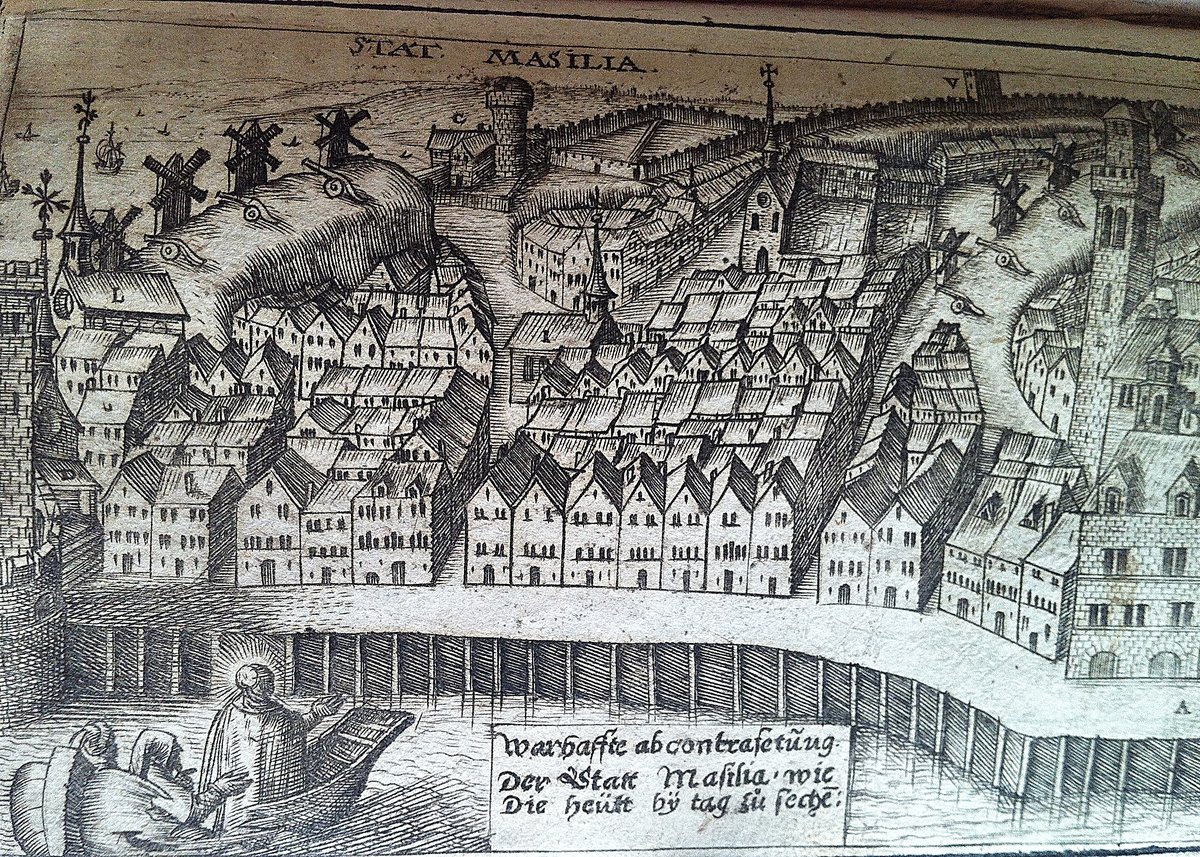 STAT. MASILIA.
V
C
L
I
A
Warhaffte abcontrafetũng.
Der Statt Masilia. wie
Die heütt bÿ tag zů sechē: